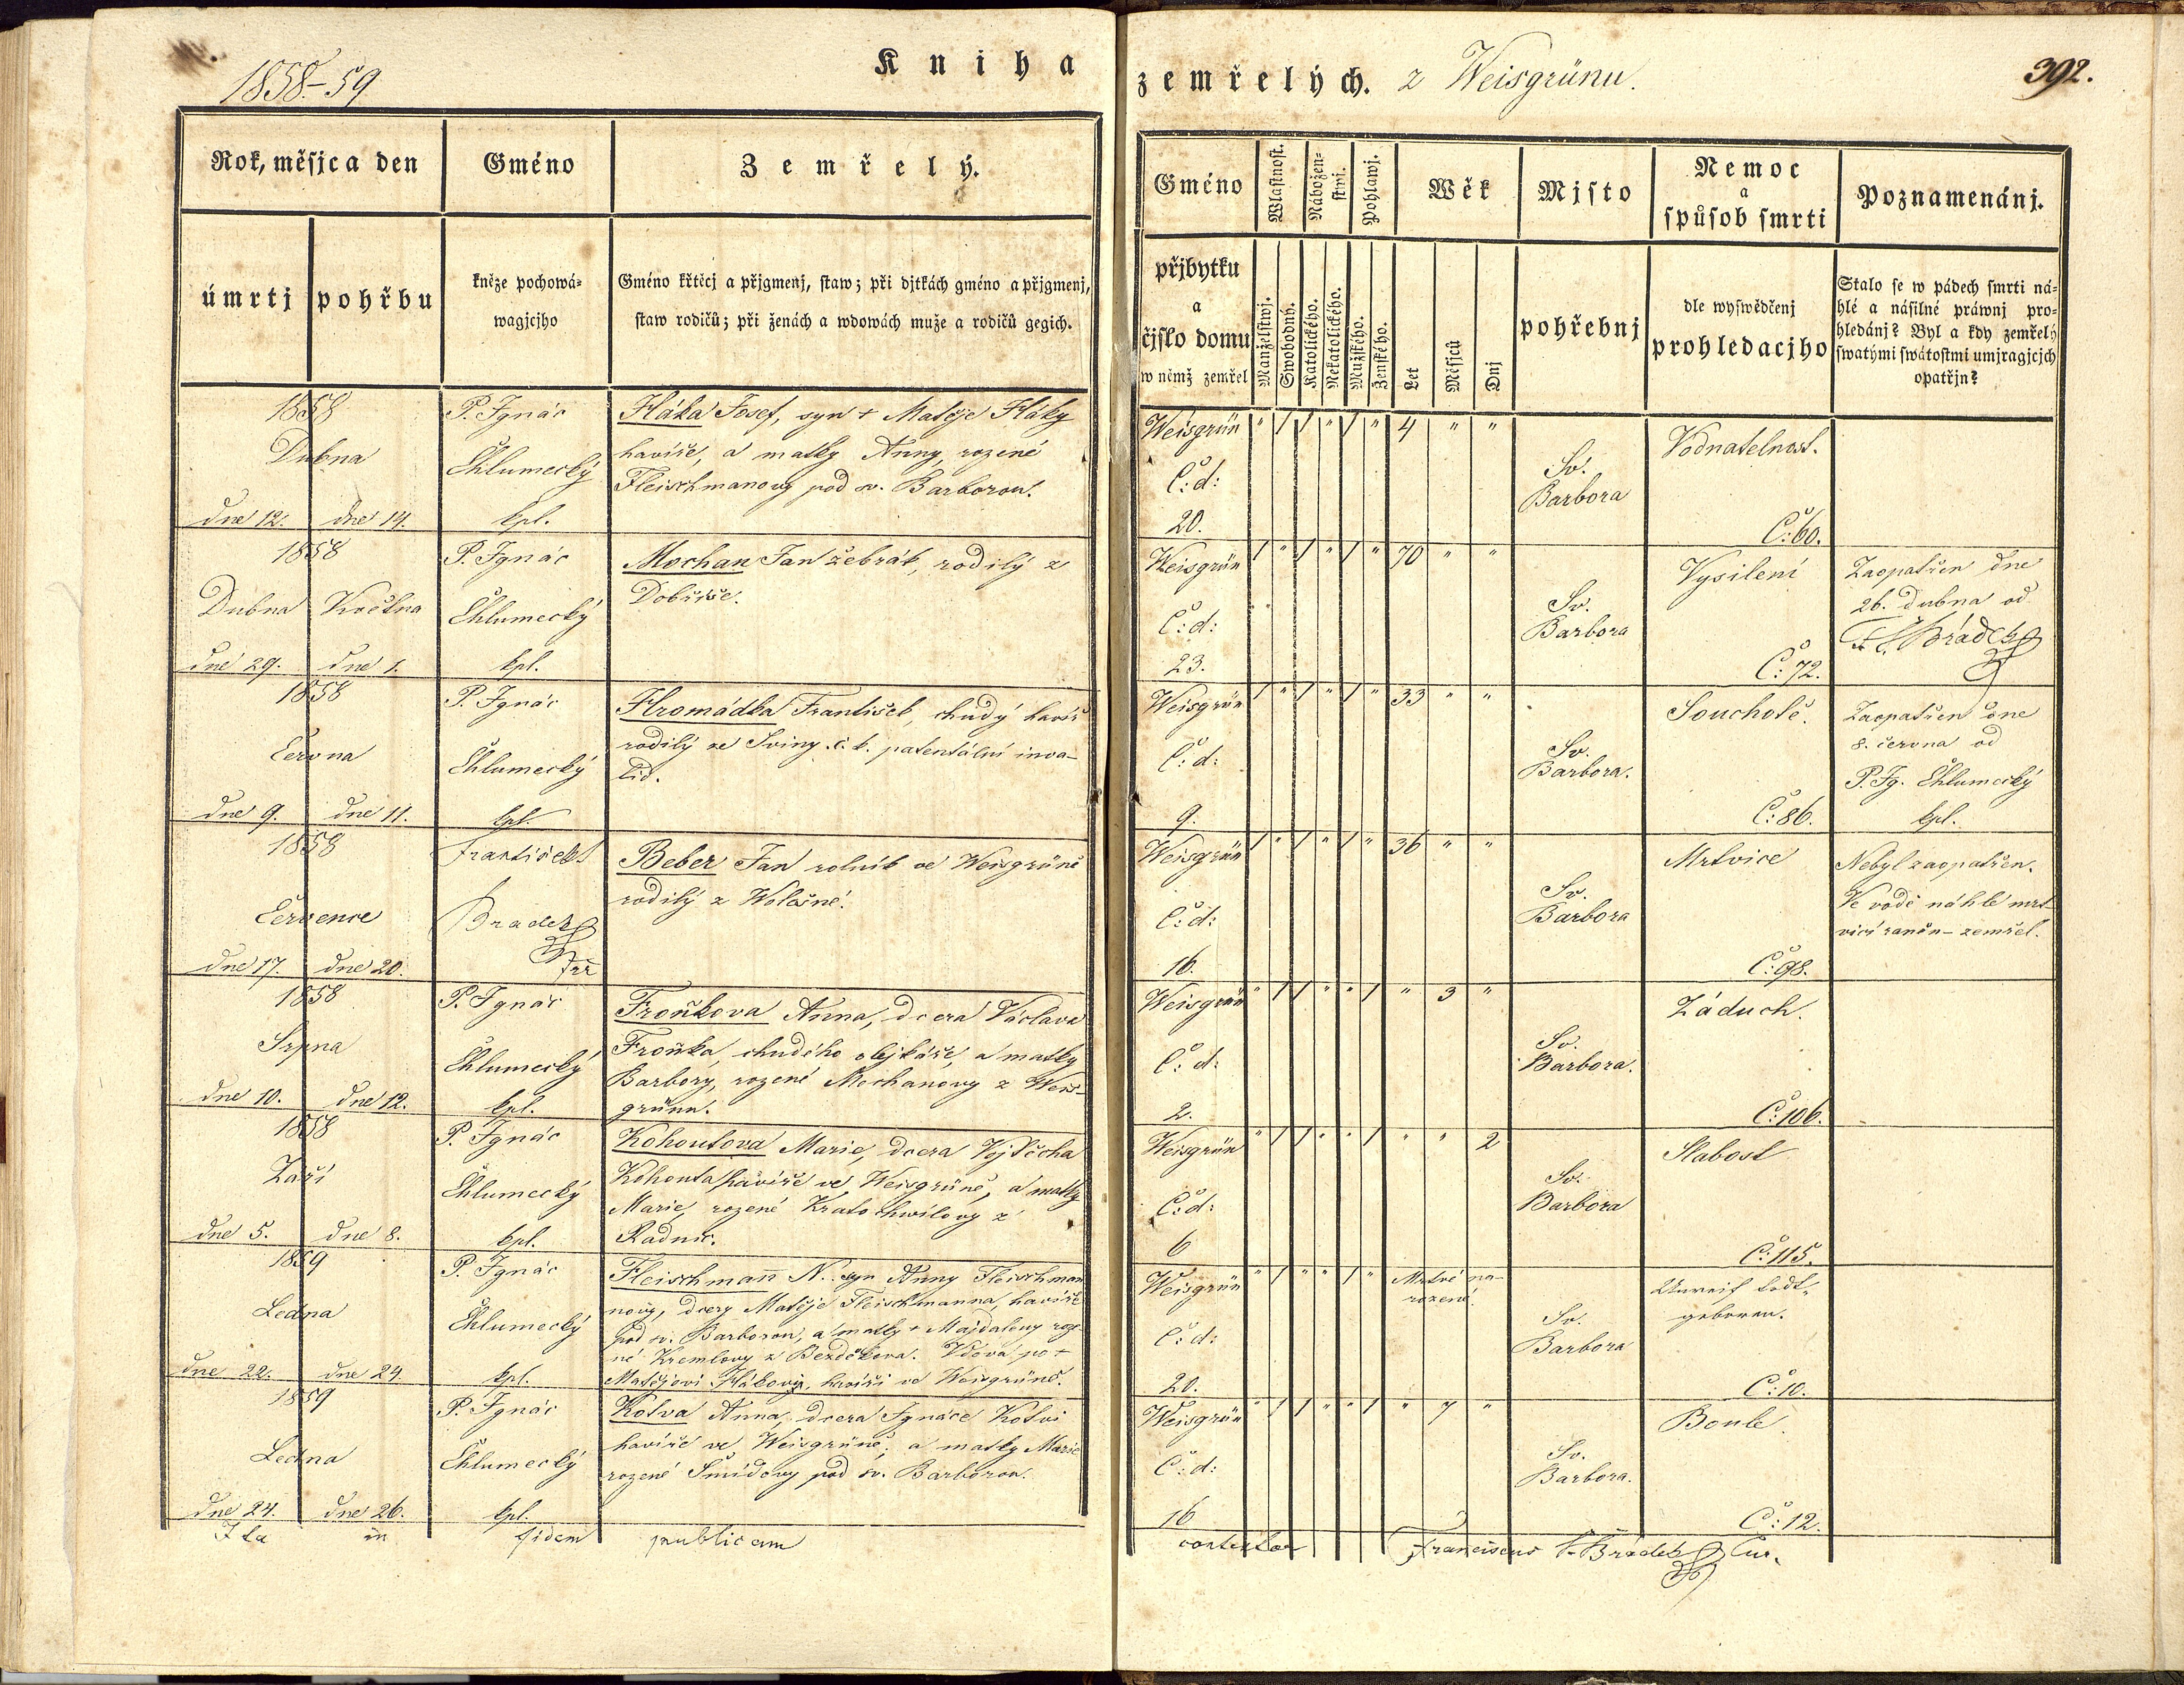 1858-59
Kniha
zemřelých. z Weisgrünu.
392.
Rok, měsjc a den
Gméno
Zemřelý.
úmrtj
pohřbu
kněze pochowá-
wagjcjho
Gméno křtěcj a přjgmenj, staw; při djtkách gméno a přjgmenj,
staw rodičů; při ženách a wdowách muže a rodičů gegich.
Gméno
Wlastnost.
Nábožen-
stwj.
Pohlawj.
Wěk
Mjsto
Nemoc
a
spůsob smrti
Poznamenánj.
přjbytku
a
čjslo domu
w němž zemřel
Manželstwj.
Swobodný.
Katolického.
Nekatolického.
Mužského.
Ženského.
Let
Měsjců
Dnj
pohřebnj
dle wyswědčenj
prohledacjho
Stalo se w pádech smrti ná-
hlé a násilné práwnj pro-
hledánj? Byl a kdy zemřelý
swatými swátostmi umjragjcjch
opatřjn?
1858
Dubna
dne 12. dne 14.
P. Ignác
Chlumecký
kpl.
Hláka Josef, syn + Matěje Hláky
havíře, a matky Anny, rozené
Fleischmanovy pod sv. Barborou.
Weisgrün
Č: d:
20.
" / / " / " 4 " "
Sv.
Barbora
Vodnatelnost.
Č: 60.
1858
Dubna Května
dne 29. dne 1.
P. Ignác
Chlumecký
kpl.
Mochan Jan žebrák, rodilý z
Dobříše.
Weisgrün
Č: d:
23.
/ " / " / " 70 " "
Sv.
Barbora
Vysilení
Č: 72.
Zaopatřen dne
26. dubna od
Brádek
1858
Června
dne 9. dne 11.
P. Ignác
Chlumecký
kpl.
Hromádka František, chudý havíř
rodilý ze Sviny. c. k. patentální inva-
lid.
Weisgrün
Č: d:
9.
/ " / " / " 33 " "
Sv.
Barbora.
Souchotě.
Č: 86.
Zaopatřen dne
8. června od
P. Ig. Chlumecký
kpl.
1858
Července
dne 17. dne 20.
František
Bradek
Beber Jan rolník ve Weisgrüně
rodilý z Wolešné.
Weisgrün
Č: d:
16.
/ " / " / " 36 " "
Sv.
Barbora
Mrtvice
Č: 98.
Nebyl zaopatřen.
Ve vodě náhle mrt-
vicí raněn - zemřel.
1858
Srpna
dne 10. dne 12.
P. Ignác
Chlumecký
kpl.
Froňkova Anna, dcera Václava
Froňka, chudého olejkáře, a matky
Barbory, rozené Mochanovy z Weis-
grünu.
Weisgrün
Č: d:
2.
" / / " " / " 3 "
Sv.
Barbora.
Záduch.
Č: 106.
1858
Září
dne 5. dne 8.
P. Ignác
Chlumecký
kpl.
Kohoutova Marie, dcera Vojtěcha
Kohouta, havíře ve Weisgrüně, a matky
Marie, rozené Kratochwilovy z
Radnic.
Weisgrün
Č: d:
6
" / / " " / " " 2
Sv.
Barbora
Slabost
Č: 115.
1859
Ledna
dne 22. dne 24.
P. Ignác
Chlumecký
kpl.
Fleischmann N.. syn Anny Fleischman
novy, dcery Matěje Fleischmanna, havíře
pod sv. Barborou, a matky + Majdaleny roze
né Kremlovy z Bezděkova. Vdova po +
Matějovi Hlákovi, havíři ve Weisgrüně.
Weisgrün
Č: d:
20.
" / " " / " Mrtvé na-
rozené.
Sv.
Barbora
Unreif todt-
geboren.
Č: 10.
1859
Ledna
dne 24. dne 26.
P. Ignác
Chlumecký
kpl.
Kotva Anna, dcera Ignáce Kotvi
havíře ve Weisgrüně, a matky Marie
rozené Šmídovy pod sv. Barborou.
Weisgrün
Č: d:
16
" / / " " / " 7 "
Sv.
Barbora.
Boule.
Č: 12.
Ita in fidem publicam
contestor Franciscus Brádek Cur.